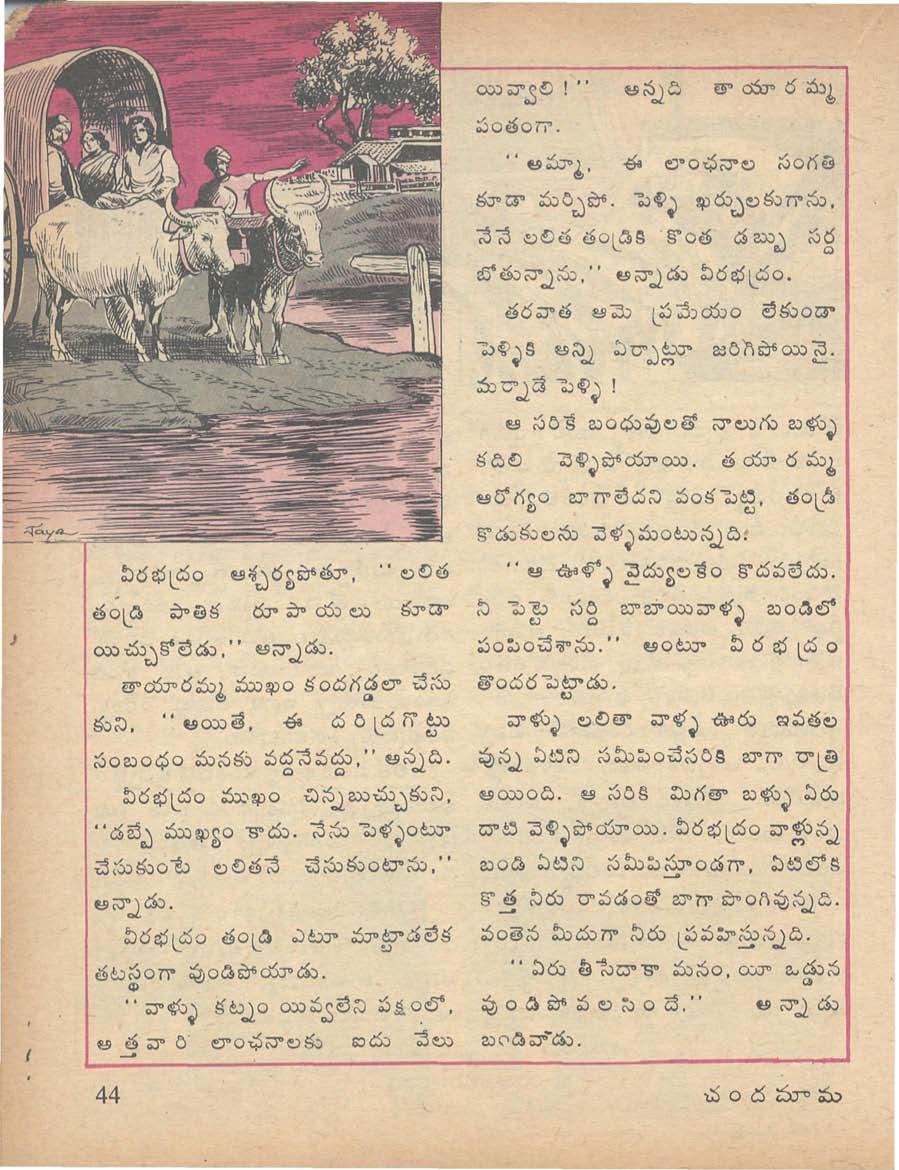 Taya
వీరభద్రం ఆశ్చర్యపోతూ, ‘‘లలిత
తండ్రి పాతిక రూపాయలు కూడా
యిచ్చుకోలేడు,’’ అన్నాడు.
తాయారమ్మ ముఖం కందగడ్డలా చేసు
కుని, ‘‘అయితే, ఈ దరిద్రగొట్టు
సంబంధం మనకు వద్దనేవద్దు,’’ అన్నది.
వీరభద్రం ముఖం చిన్నబుచ్చుకుని,
‘‘డబ్బే ముఖ్యం కాదు. నేను పెళ్ళంటూ
చేసుకుంటే లలితనే చేసుకుంటాను,’’
అన్నాడు.
వీరభద్రం తండ్రి ఎటూ మాట్టాడలేక
తటస్థంగా వుండిపోయాడు.
‘‘వాళ్ళు కట్నం యివ్వలేని పక్షంలో,
అత్తవారి లాంఛనాలకు ఐదు వేలు
యివ్వాలి!’’ అన్నది తాయారమ్మ
పంతంగా.
‘‘అమ్మా, ఈ లాంఛనాల సంగతి
కూడా మర్చిపో. పెళ్ళి ఖర్చులకుగాను,
నేనే లలిత తండ్రికి కొంత డబ్బు సర్ద
బోతున్నాను,’’ అన్నాడు వీరభద్రం.
తరవాత ఆమె ప్రమేయం లేకుండా
పెళ్ళికి అన్ని ఏర్పాట్లూ జరిగిపోయినై.
మర్నాడే పెళ్ళి!
ఆ సరికే బంధువులతో నాలుగు బళ్ళు
కదిలి వెళ్ళిపోయాయి. తయారమ్మ
ఆరోగ్యం బాగాలేదని వంకపెట్టి, తండ్రీ
కొడుకులను వెళ్ళమంటున్నది.
‘‘ఆ ఊళ్ళో వైద్యులకేం కొదవలేదు.
నీ పెట్టె సర్ది బాబాయివాళ్ళ బండిలో
పంపించేశాను.’’ అంటూ వీరభద్రం
తొందరపెట్టాడు.
వాళ్ళు లలితా వాళ్ళ ఊరు ఇవతల
వున్న ఏటిని సమీపించేసరికి బాగా రాత్రి
అయింది. ఆ సరికి మిగతా బళ్ళు ఏరు
దాటి వెళ్ళిపోయాయి. వీరభద్రం వాళ్లున్న
బండి ఏటిని సమీపిస్తూండగా, ఏటిలోకి
కొత్త నీరు రావడంతో బాగా పొంగివున్నది.
వంతెన మీదుగా నీరు ప్రవహిస్తున్నది.
‘‘ఏరు తీసేదాకా మనం, యీ ఒడ్డున
వుండిపోవలసిందే.’’ అన్నాడు
బండివాడు.
44
చందమామ